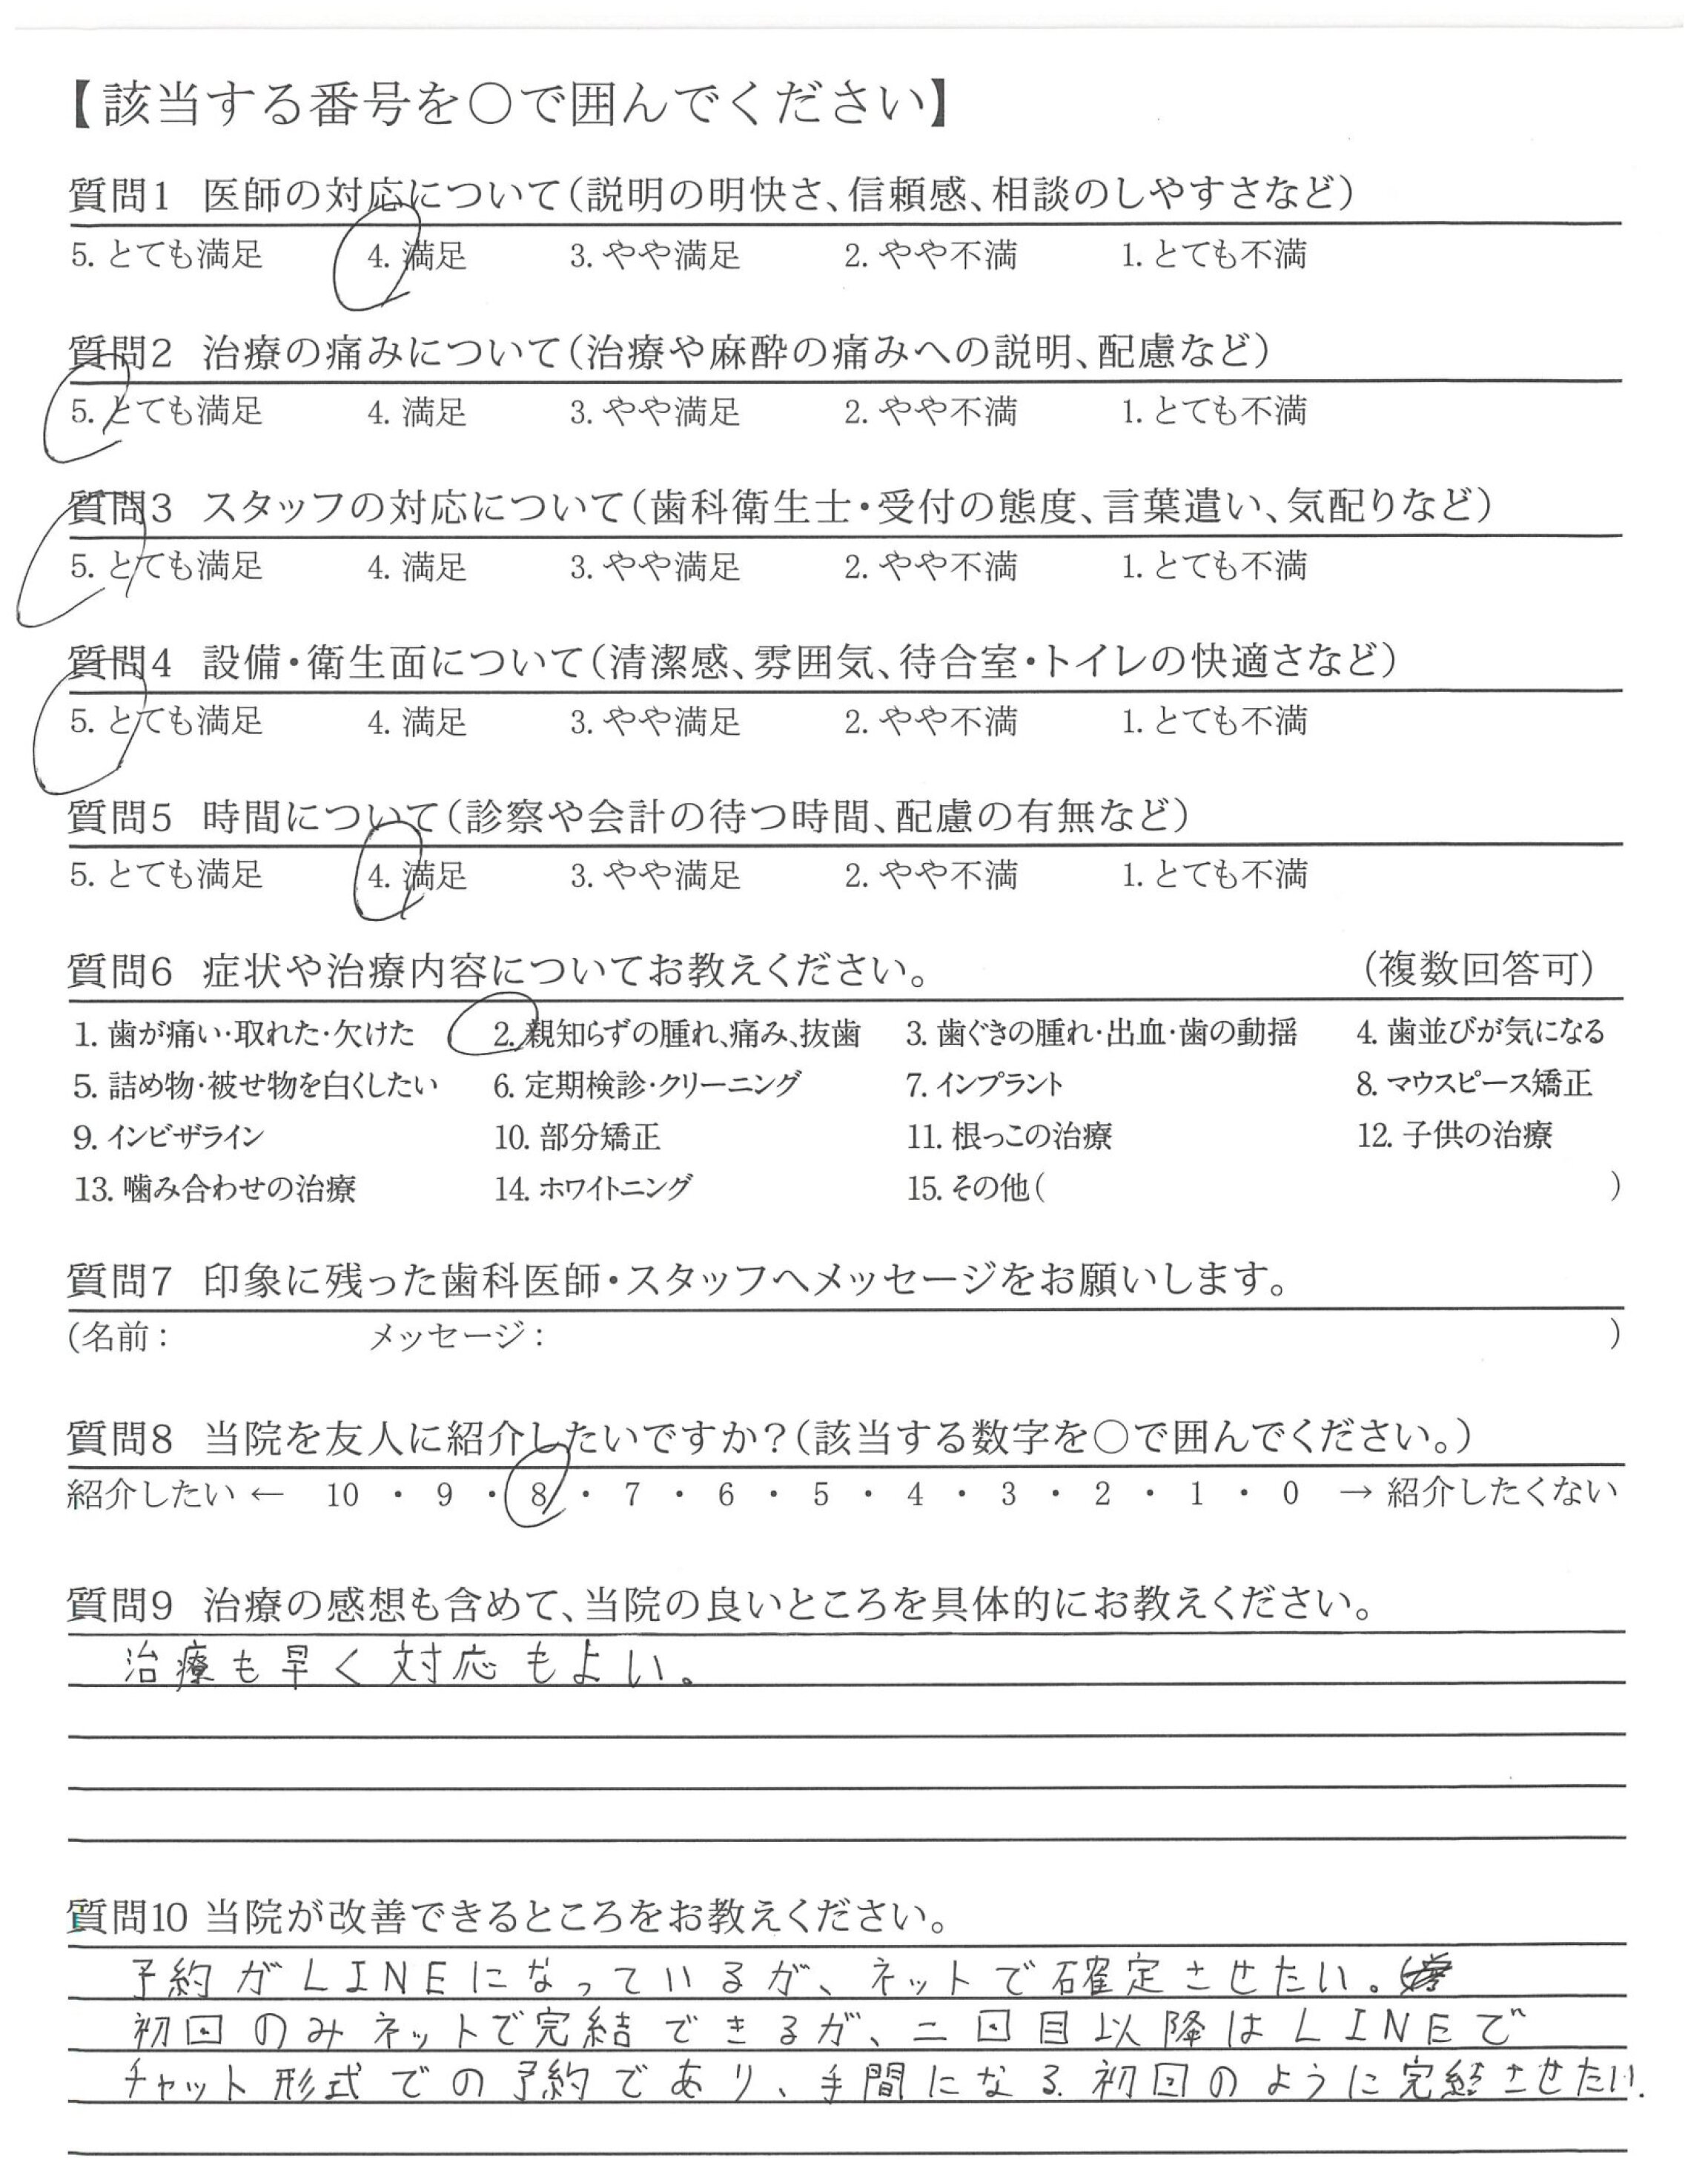 【該当する番号を○で囲んでください】
質問1 医師の対応について(説明の明快さ、信頼感、相談のしやすさなど)
5. とても満足 4. 満足 3. やや満足 2. やや不満 1. とても不満
質問2 治療の痛みについて(治療や麻酔の痛みへの説明、配慮など)
5. とても満足 4. 満足 3. やや満足 2. やや不満 1. とても不満
質問3 スタッフの対応について(歯科衛生士・受付の態度、言葉遣い、気配りなど)
5. とても満足 4. 満足 3. やや満足 2. やや不満 1. とても不満
質問4 設備・衛生面について(清潔感、雰囲気、待合室・トイレの快適さなど)
5. とても満足 4. 満足 3. やや満足 2. やや不満 1. とても不満
質問5 時間について(診察や会計の待つ時間、配慮の有無など)
5. とても満足 4. 満足 3. やや満足 2. やや不満 1. とても不満
質問6 症状や治療内容についてお教えください。 (複数回答可)
1. 歯が痛い・取れた・欠けた 2. 親知らずの腫れ、痛み、抜歯 3. 歯ぐきの腫れ・出血・歯の動揺 4. 歯並びが気になる
5. 詰め物・被せ物を白くしたい 6. 定期検診・クリーニング 7. インプラント 8. マウスピース矯正
9. インビザライン 10. 部分矯正 11. 根っこの治療 12. 子供の治療
13. 噛み合わせの治療 14. ホワイトニング 15. その他( )
質問7 印象に残った歯科医師・スタッフへメッセージをお願いします。
(名前: メッセージ: )
質問8 当院を友人に紹介したいですか?(該当する数字を○で囲んでください。)
紹介したい ← 10 ・ 9 ・ 8 ・ 7 ・ 6 ・ 5 ・ 4 ・ 3 ・ 2 ・ 1 ・ 0 → 紹介したくない
質問9 治療の感想も含めて、当院の良いところを具体的にお教えください。
治療も早く対応もよい。
質問10 当院が改善できるところをお教えください。
予約がLINEになっているが、ネットで確定させたい。
初回のみネットで完結できるが、二回目以降はLINEで
チャット形式での予約であり、手間になる.初回のように完結させたい.